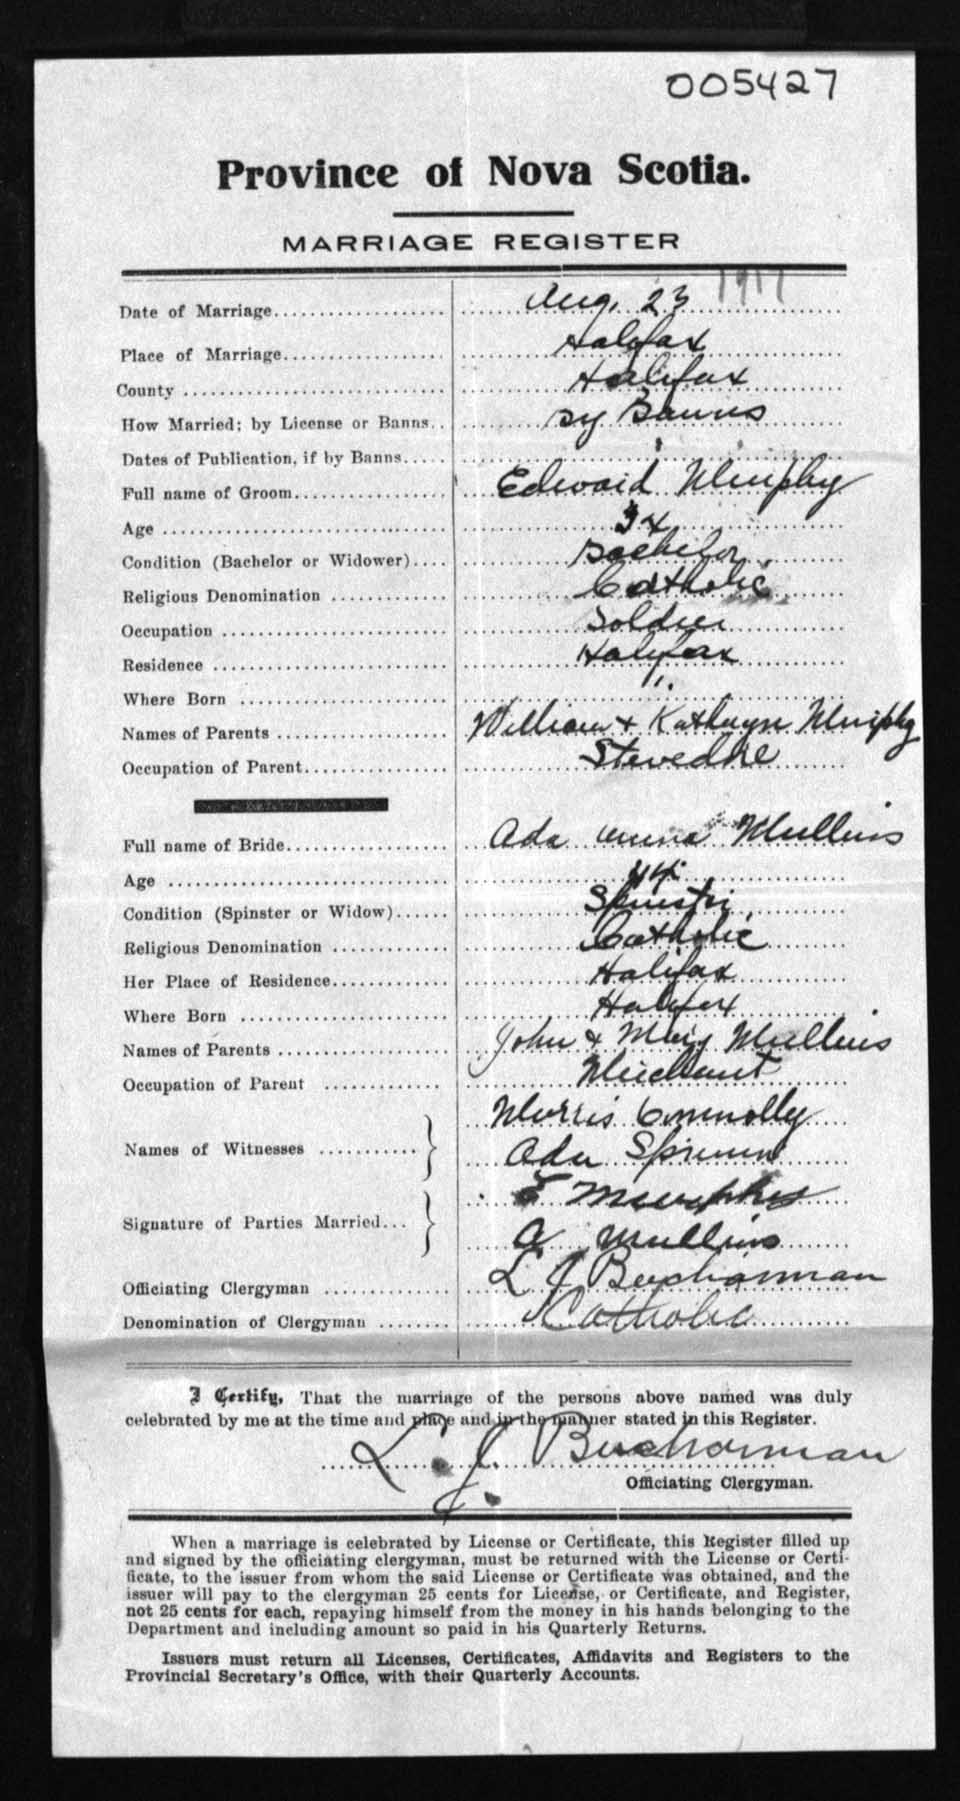 005427
Province of Nova Scotia.
MARRIAGE REGISTER
Date of Marriage Aug. 23 1917
Place of Marriage Halifax
County Halifax
How Married; by License or Banns by Banns
Dates of Publication, if by Banns
Full name of Groom Edward Murphy
Age
Condition (Bachelor or Widower) Bachelor
Religious Denomination Catholic
Occupation Soldier
Residence Halifax
Where Born "
Names of Parents William & Kathryn Murphy
Occupation of Parent Stevedore
Full name of Bride Ada Anna Mullins
Age
Condition (Spinster or Widow) Spinster
Religious Denomination Catholic
Her Place of Residence Halifax
Where Born Halifax
Names of Parents John & Mary Mullins
Occupation of Parent Merchant
Names of Witnesses Morris Connolly
Ada
Signature of Parties Married E Murphy
A Mullins
Officiating Clergyman L J Buchanan
Denomination of Clergyman Catholic
I Certify, That the marriage of the persons above named was duly
celebrated by me at the time and place and in the manner stated in this Register.
L. J. Buchanan
Officiating Clergyman.
When a marriage is celebrated by License or Certificate, this Register filled up
and signed by the officiating clergyman, must be returned with the License or Certi-
ficate, to the issuer from whom the said License or Certificate was obtained, and the
issuer will pay to the clergyman 25 cents for License, or Certificate, and Register,
not 25 cents for each, repaying himself from the money in his hands belonging to the
Department and including amount so paid in his Quarterly Returns.
Issuers must return all Licenses, Certificates, Affidavits and Registers to the
Provincial Secretary's Office, with their Quarterly Accounts.